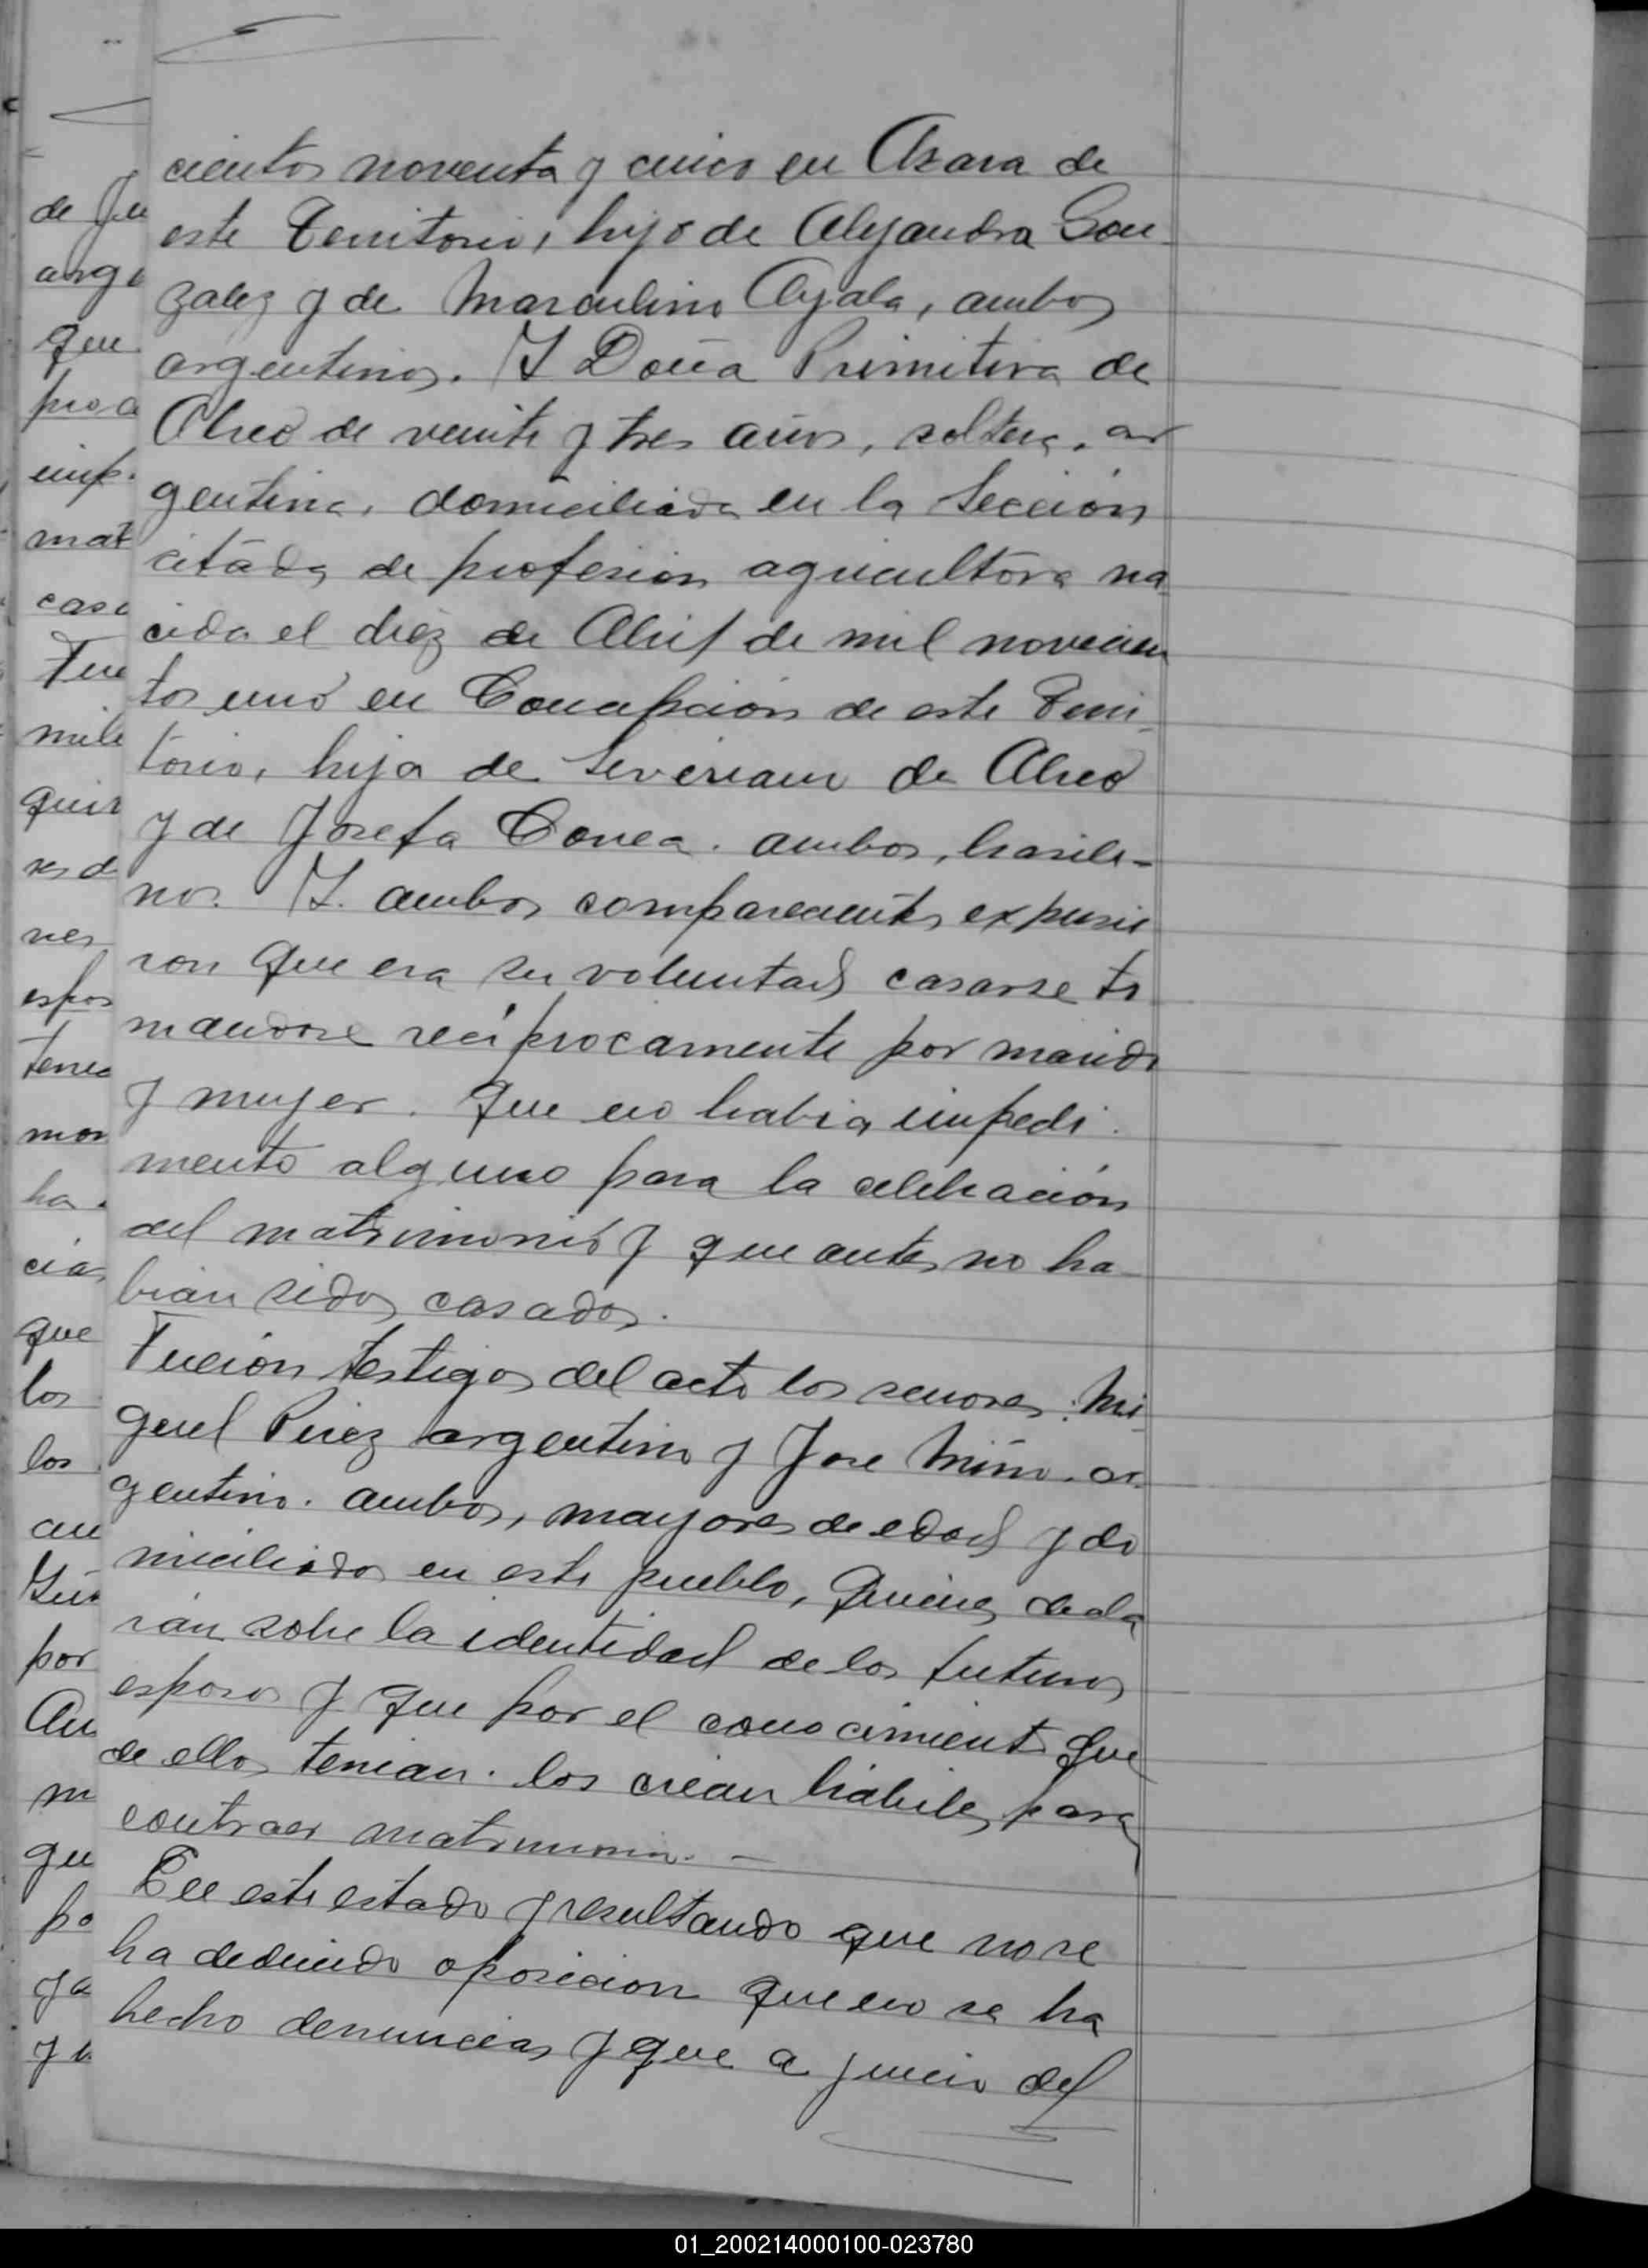 de Ju
arge
que
proc
imp.
mat
case
Fue
mile
quin
res d
nes
espos
tenec
mon
ha
cia
que
los
los
an
por
Au
m
qu
po
ya
cientos noventa y cinco en Azara de
este Territorio, hijo de Alejandra Gon
zalez y de Marculino Ayala, ambos
argentinos. Y Doña Primitiva de
Abreo de veinte y tres años, soltera, ar
gentina, domiciliada en la Sección
citada de profesion agricultora na
cida el diez de Abril de mil novecien
tos uno en Concepción de este Terri
torio, hija de Severiano de Abreo
y de Josefa Correa. ambos, brasile-
nos. Y. ambos comparecientes expusie
ron que era su voluntad casarse to
mandose reciprocamente por marido
y mujer. Que no habia impedi
mento alguno para la celebración
del matrimonio y que antes no ha
bian sidos casados.
Fueron testigos del acto los senores: Mi
guel Perez argentino y Jose Miño. ar
gentino. ambos, mayores de edad y do
miciliados en este pueblo, Quienes decla
ran sobre la identidad de los futuros
esposos y que por el conocimiento que
de ellos tenian. los creian hábiles para
contraer matrimonio. —
En este estado y resultando que no se
ha deducido oposicion que no se ha
hecho denuncias y que a juicio del
01_200214000100-023780